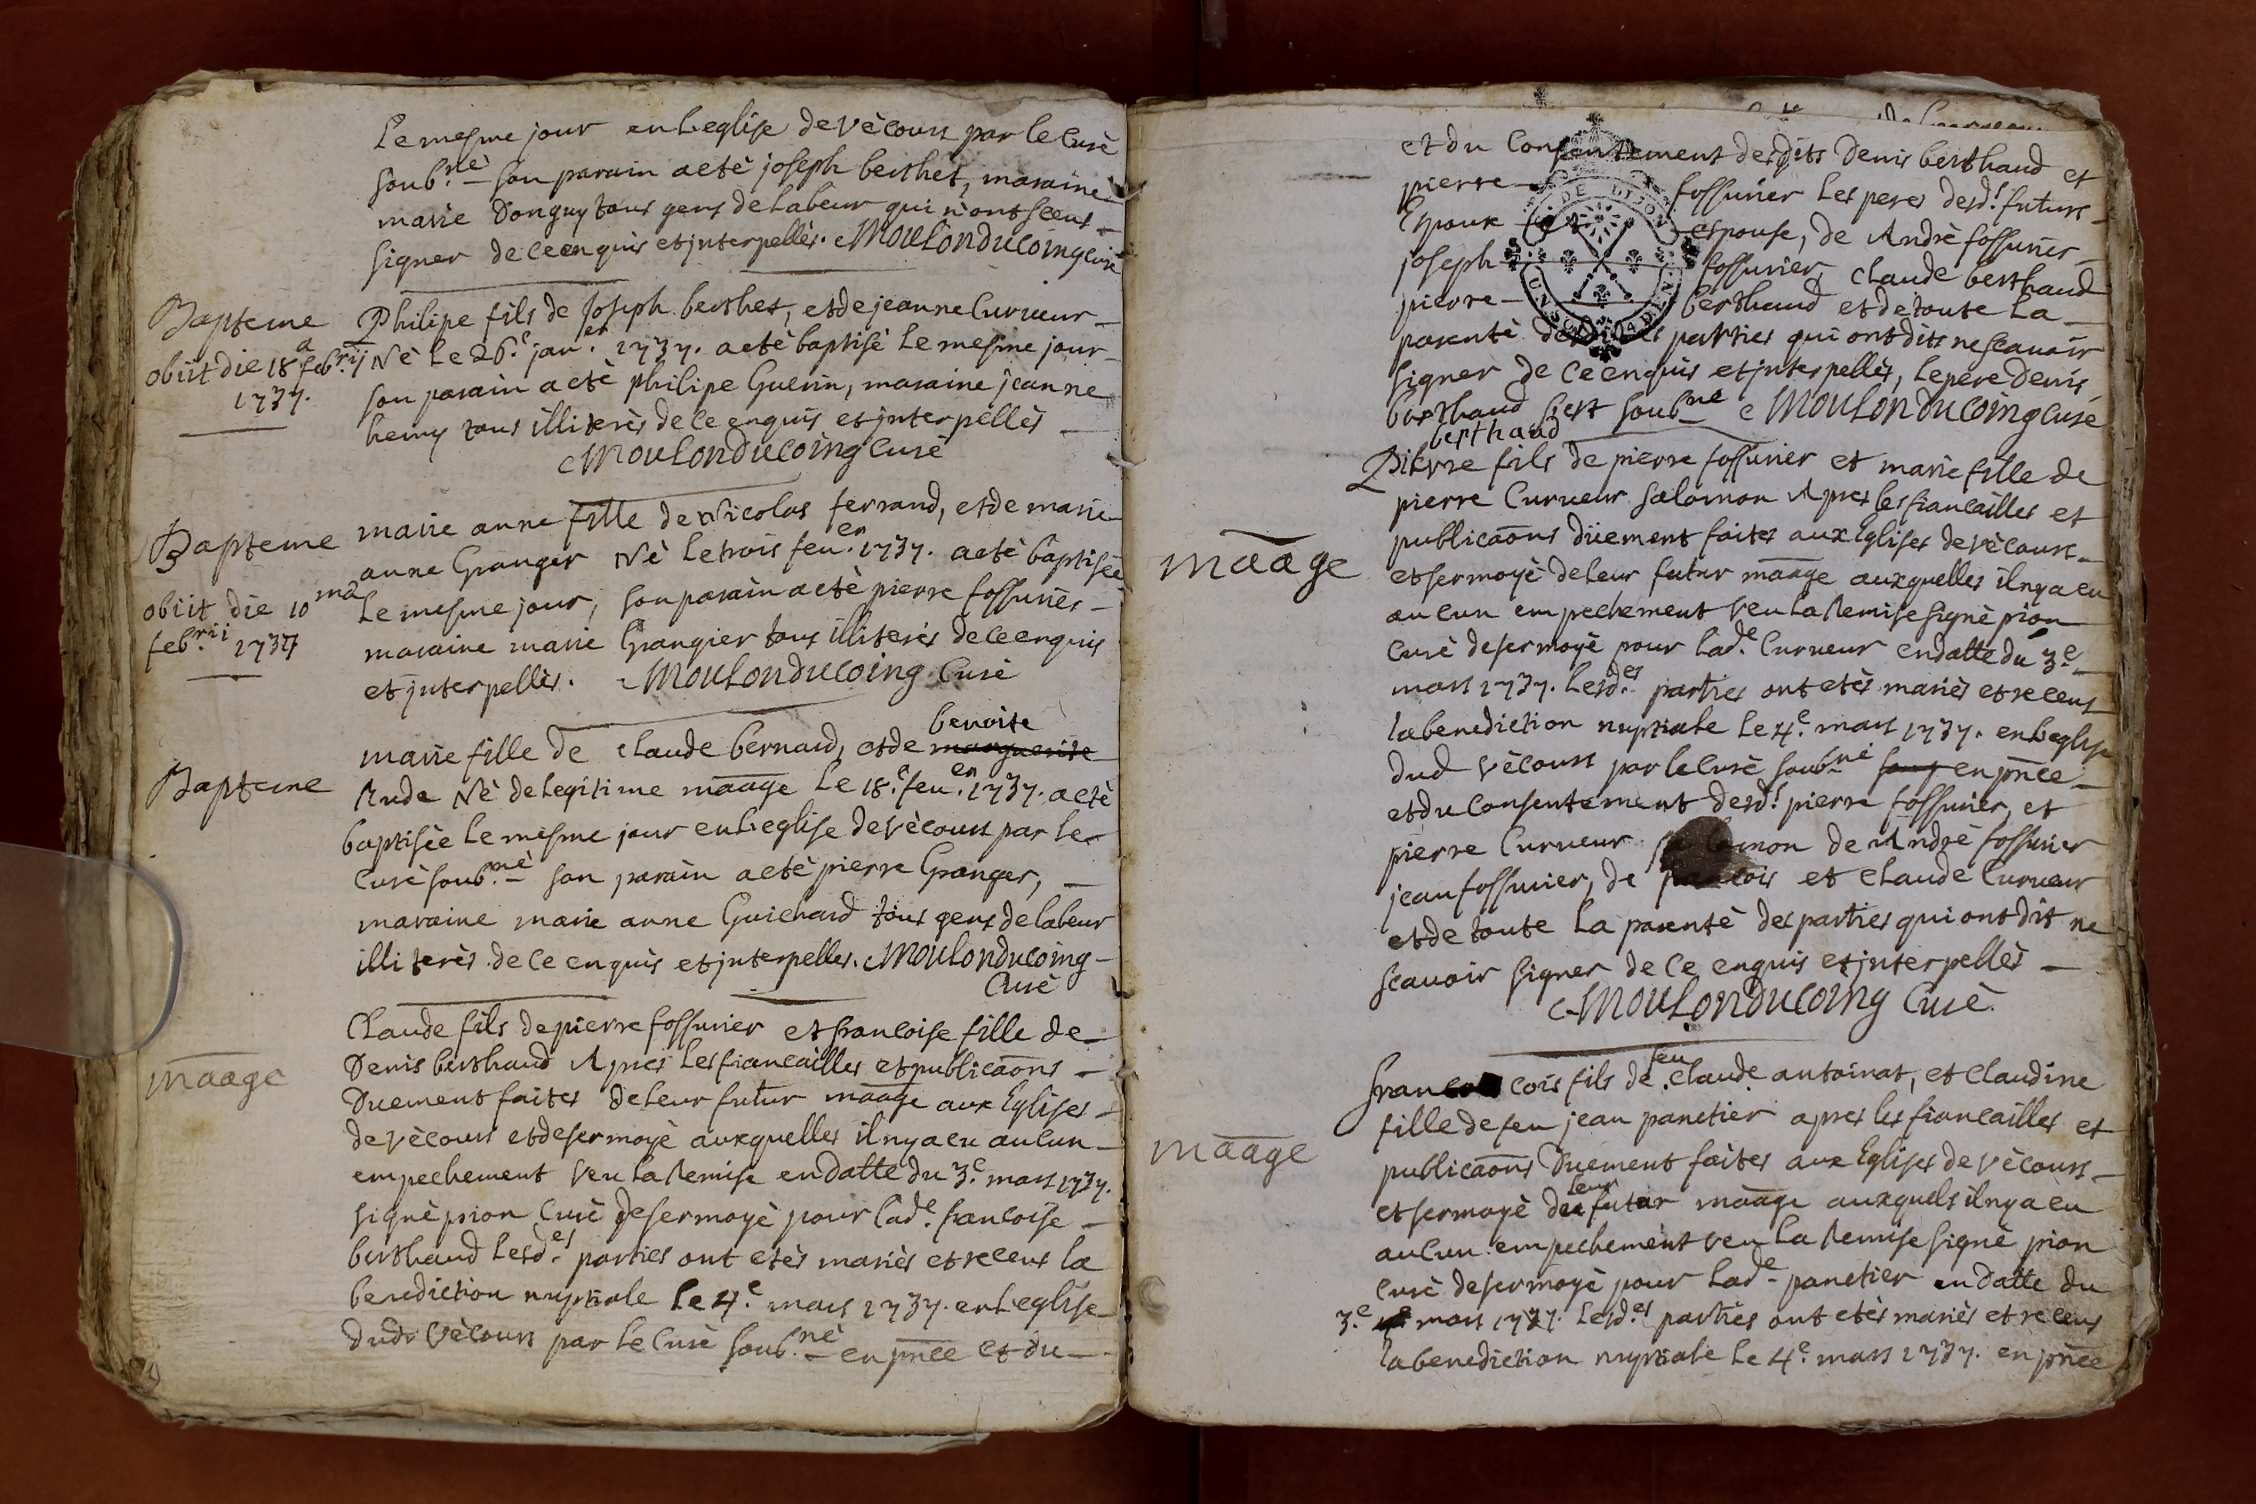 Le mesme jour en L'eglise de vècourt par le Curè
soub.nè son parain a etè joseph berthet, maraine
marie Donguy tous gens de labeur qui n'ont sceus
signer de ce enquis et jnterpellès. Moulonducoing Curè
Bapteme
obiit die 18a feb.rij
1737.
Philipe fils de Joseph berthet, et de jeanne Curveur
Nè Le 26.e jan.er 1737. a etè baptisè Le mesme jour
son parain a etè philipe Guerin, maraine jeanne
henry tous illiterès de ce enquis et jnterpellès
Moulonducoing Curè
Bapteme
obiit die 10ma
feb.rii 1737
marie anne fille de Nicolas ferrand, et de marie
anne Granger Nè Le trois feu.er 1737. a etè baptisèe
Le mesme jour, son parain a etè pierre fossurier
maraine marie Grangier tous illiterès de ce enquis
et jnterpellès. Moulonducoing Curè
Bapteme
benoite
marie fille de Claude bernard, et de marguerite
Rude Nè de legitime maage Le 18.e feu.er 1737. a etè
baptisèe Le mesme jour en L'eglise de vècourt par le
Curè soub.nè son parain a etè pierre Granger,
maraine marie anne Guichard tous gens de labeur
illiterès de ce enquis et jnterpelles. Moulonducoing
Curè
maage
Claude fils de pierre fossurier et francoise fille de
Denis berthaud Apres les fiancailles et publicaons
Duement faites de leur futur maage aux Eglises
de vècourt et de sermoyè auxquelles il n'y a eu aucun
empechement veu la Remise en datte du 3.e mars 1737.
signè prion Curè de sermoyè pour lad.e francoise
berthaud lesd.es parties ont etès mariès et receus la
benediction nuptiale Le 4.e mars 1737. en L'eglise
dudt vècourt par le Curè soub.nè en pnce et du
et du Consentement desdits Denis berthaud et
pierre fossurier les peres desd.s futurs
Epoux espouse, de Andrè fossurier
joseph fossurier, Claude berthaud
pierre berthaud et de toute la
parentè desdites parties qui ont dits ne scavoir
signer de ce enquis et jnterpellès, le pere Denis
berthaud s'est soub.ne Moulonducoing Curè
berthaud
maage
Pierre fils de pierre fossurier et marie fille de
pierre Curveur salomon Apres les fiancailles et
publicaons düement faites aux Eglises de vècourt
et sermoyè de leur futur maage auxquelles il n'y a eu
aucun empechement veu la Remise signè prion
Curè de sermoyè pour lad.e Curveur en datte du 3.e
mars 1737. lesd.es parties ont etès mariès et receus
la benediction nuptiale le 4.e mars 1737. en L'eglise
dud vècourt par le Curè soub.nè en pnce
et du Consentement desd.s pierre fossurier, et
pierre Curveur salomon de Andrè fossurier
jean fossurier, de francois et Claude Curveur
et de toute la parentè des parties qui ont dit ne
scavoir signer de ce enquis et jnterpellès
Moulonducoing Curè.
maage
feu
francois fils de Claude antoinat, et Claudine
fille de feu jean panetier apres les fiancailles et
publicaons Duement faites aux Eglises de vècourt
leur
et sermoyè de futur maage auxquels il n'y a eu
aucun empechement veu la Remise signè prion
Curè de sermoyè pour lad.e panetier en datte du
3.e mars 1737. lesd.es parties ont etès mariès et receus
la benediction nuptiale le 4.e mars 1737. en pnce